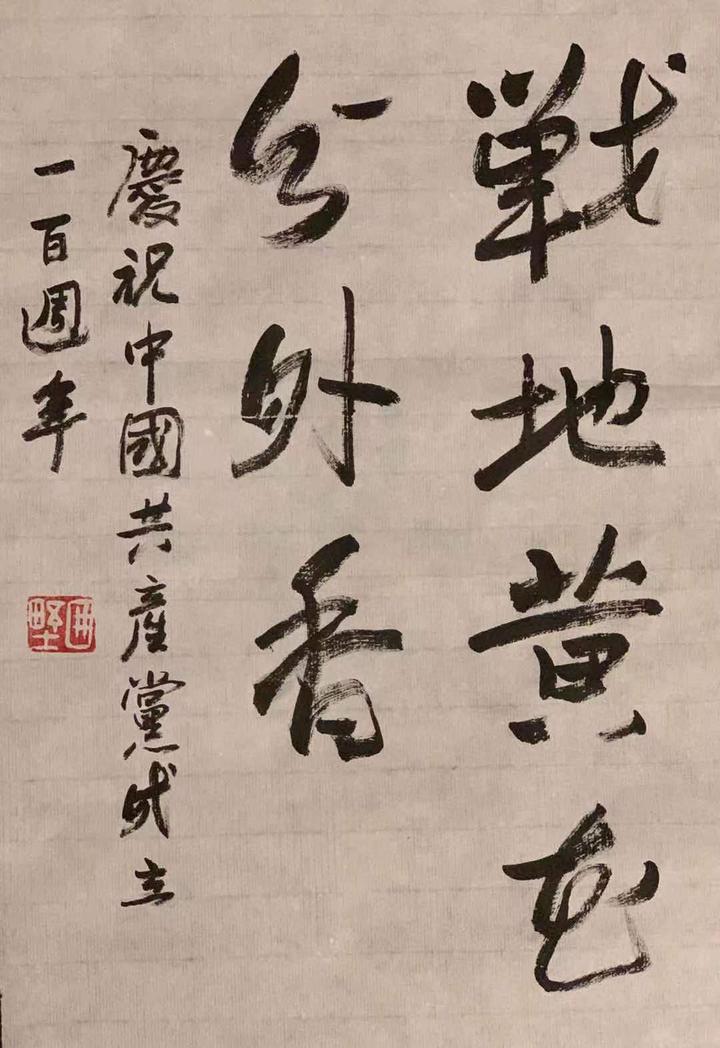 戦地黄花
分外香
慶祝中國共產黨成立
一百週年